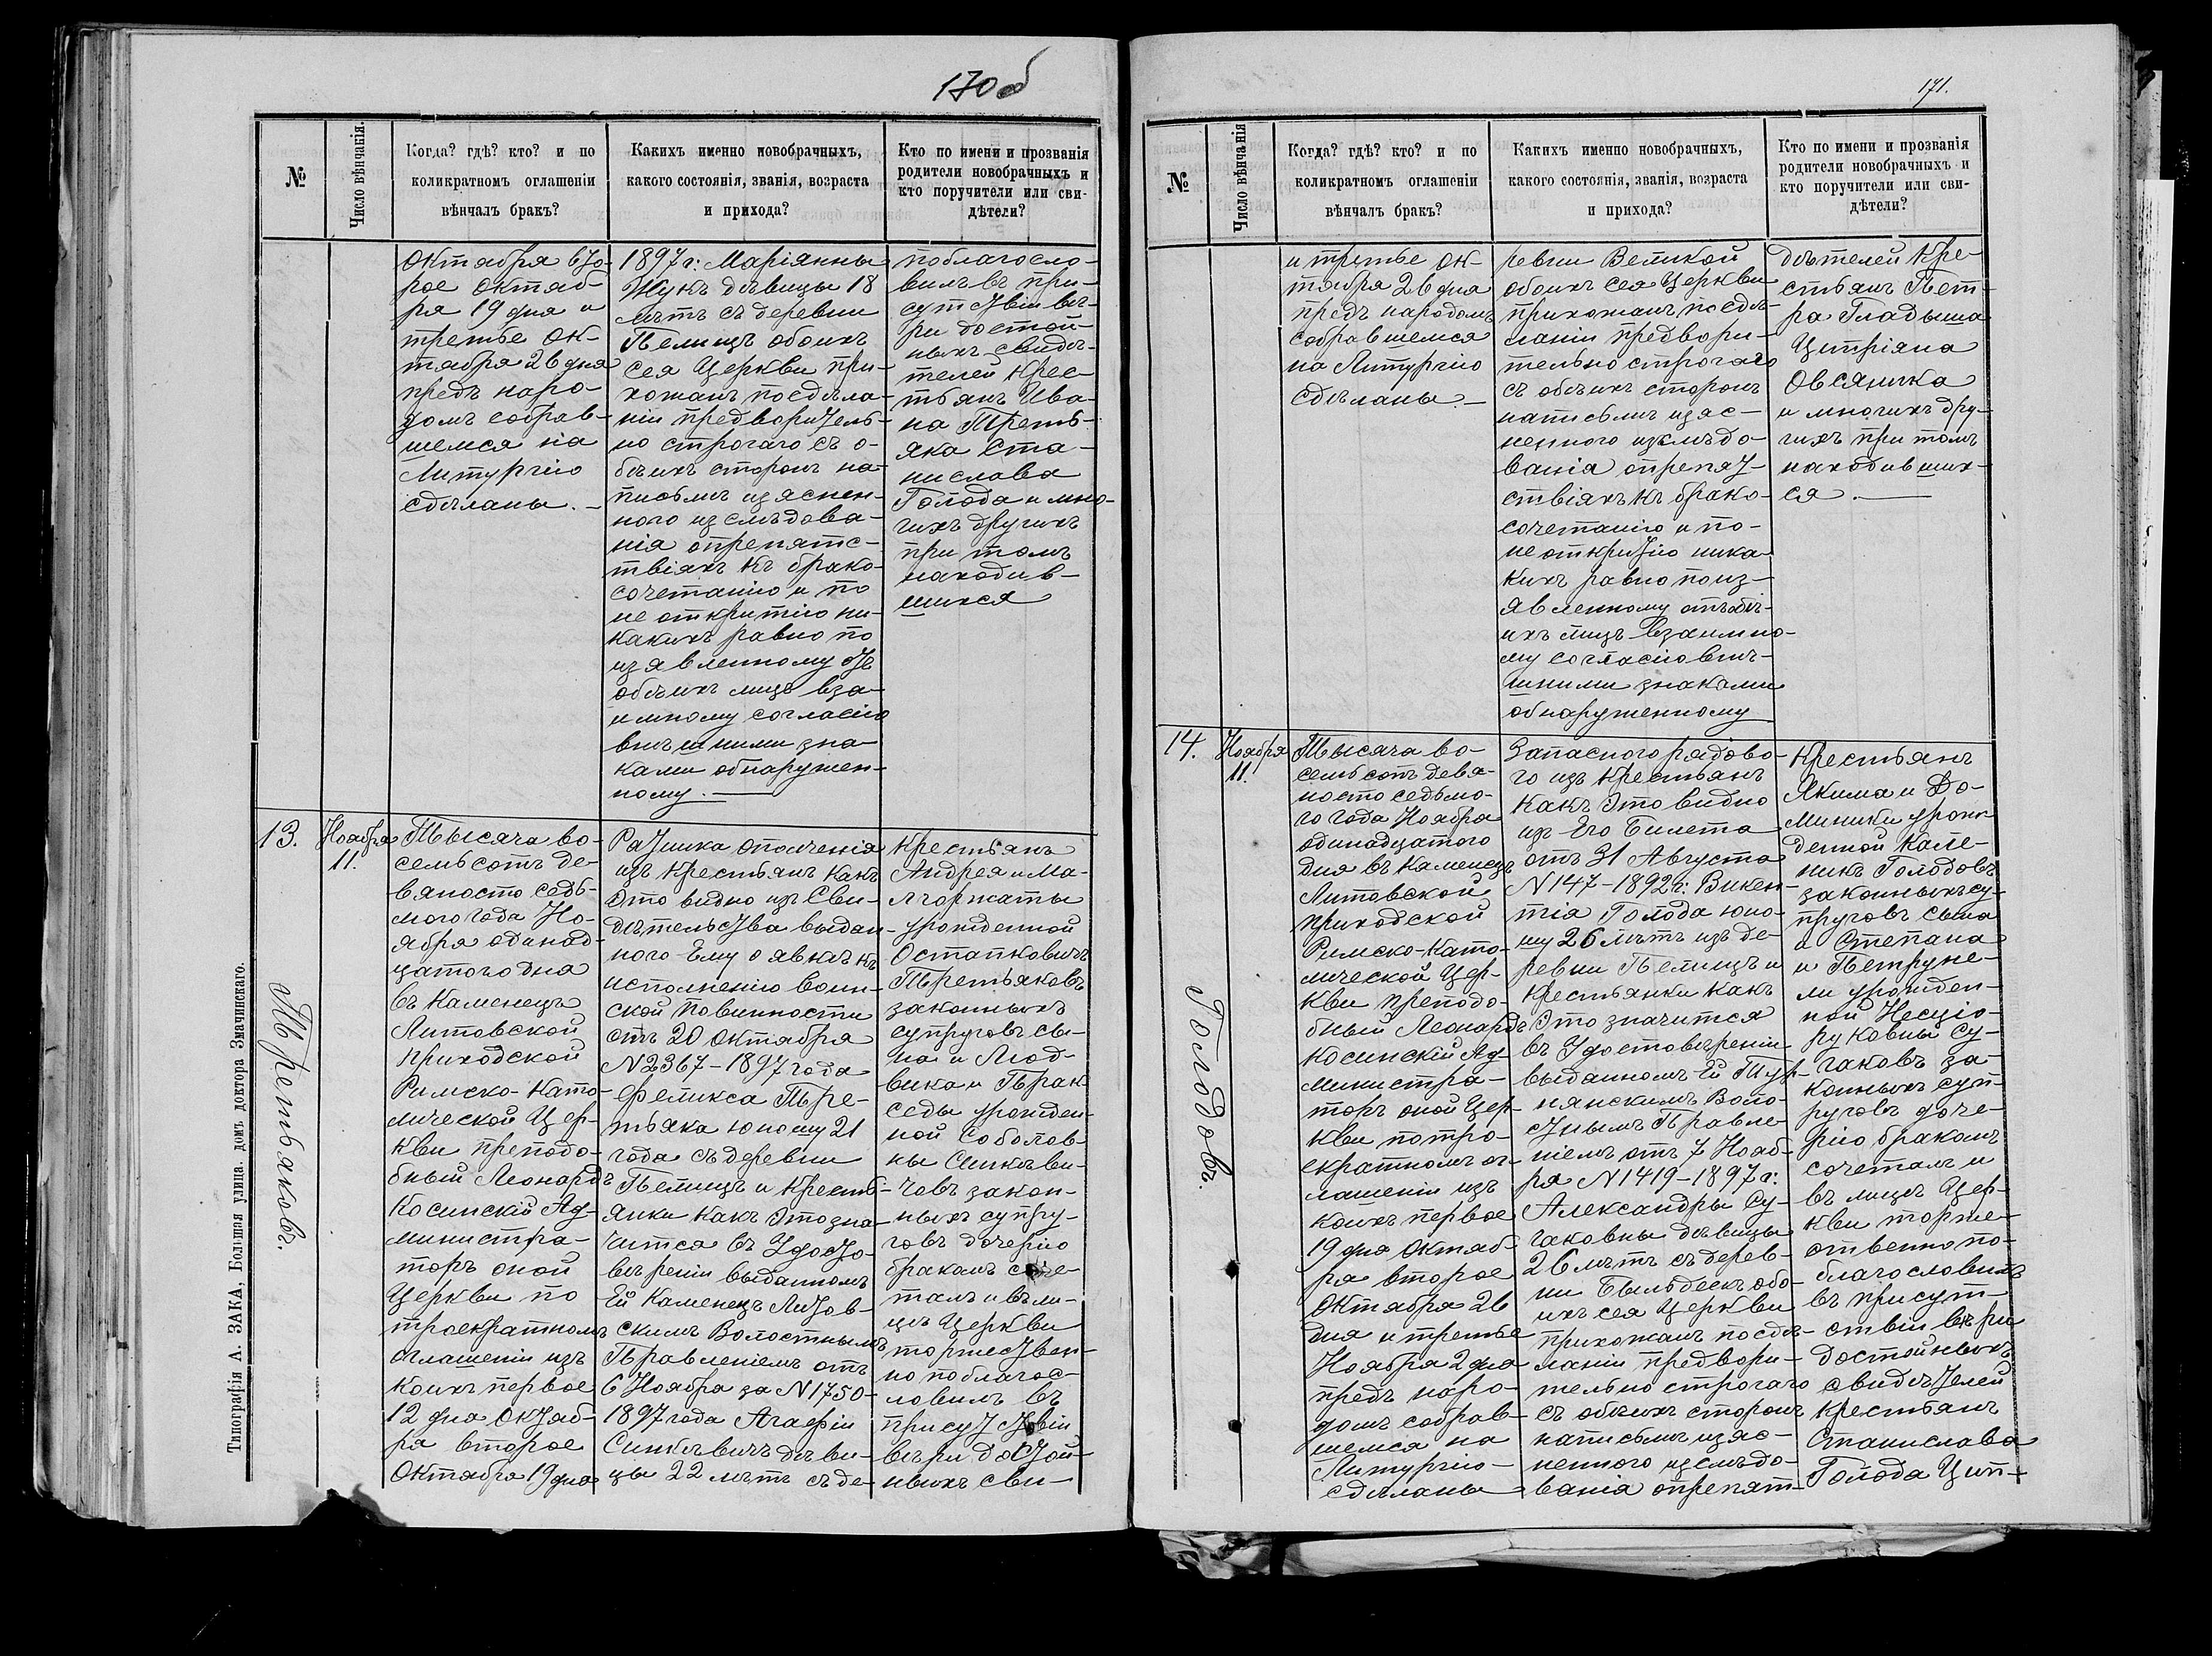 170об
№
Число вѣнчанія.
Когда? гдѣ? кто? и по
коликратномъ оглашеніи
вѣнчалъ бракъ?
Какихъ именно новобрачныхъ,
какого состоянія, званія, возраста
и прихода?
Кто по имени и прозванія
родители новобрачныхъ и
кто поручители или сви-
дѣтели?
Октября вто-
рое октяб-
ря 19 дня и
третье Ок-
тября 26 дня
предъ наро-
домъ собрав-
шемся на
Литургію
сдѣланы. —
1897 г: Маріянны
Жукъ дѣвицы 18
лѣтъ съ деревни
Пелищъ обоихъ
сея Церкви при-
хожанъ посдѣла-
ніи предворитель-
но строгаго съ о-
бѣихъ сторонъ на-
письмѣ изяснен-
ного изслѣдова-
нія опрепятс-
твіяхъ къ брако-
сочетанію и по
не открытію ни-
какихъ равно по
изявленному отъ
обѣихъ лицъ вза-
имному согласію
внѣшними зна-
ками обнаружен-
ному. —
поблагосло-
вилъ въ при-
сутствіи вѣ-
ри достой-
ныхъ свидѣ-
телей Крес-
тьянъ Ива-
на Треть-
яка Ста-
нислава
Голода и мно-
гихъ другихъ
при томъ
находив-
шихся
13.
Ноября
11.
Третьяковъ.
Тысяча во-
семьсотъ де-
вяносто седь-
мого года Но-
ября одинад-
цатого дня
въ Каменецъ
Литовской
приходской
Римско-Като-
лической Цер-
кви преподо-
бный Леонардъ
Косинскій Ад-
министра-
торъ оной
Церкви по
троекратномъ
оглашеніи изъ
коихъ первое
12 дня Октяб-
ря второе
Октября 19 дня
Ратника ополченія
изъ Крестьянъ какъ
Это видно изъ Сви-
дѣтельства выдан-
ного Ему о явкѣ къ
исполненію воин-
ской повинности
отъ 20 Октября
N 2367 - 1897 года
Феликса Тре-
тьяка юношу 21
года съ деревни
Пелищъ и Кресть-
янки какъ Это зна-
чится въ Удосто-
вѣреніи выданномъ
Ей Каменецъ Литов-
скимъ Волостнымъ
Правленіемъ отъ
6 Ноября за N 1750-
1897 года Агафіи
Синкевичъ дѣви-
цы 22 лѣтъ съ де-
Крестьянъ
Андрея и Ма-
лгоржаты
урожденной
Остапковичъ
Третьяковъ
законныхъ
супруговъ сы-
на и Люд-
вика и Прак
седы урожден-
ной Соболев-
ны Синкеви-
човъ закон-
ныхъ супру-
говъ дочерію
бракомъ соче-
талъ и въ ли-
цѣ Церкви
торжествен-
но поблагос-
ловилъ въ
присутствіи
вѣри достой-
ныхъ сви-
Типографія А. ЗАКА, Большая улица. домъ доктора Значинскаго.
171.
№
Число вѣнчанія
Когда? гдѣ? кто? и по
коликратномъ оглашеніи
вѣнчалъ бракъ?
Какихъ именно новобрачныхъ,
какого состоянія, званія, возраста
и прихода?
Кто по имени и прозванія
родители новобрачныхъ и
кто поручители или сви-
дѣтели?
и третье Ок-
тября 26 дня
предъ народомъ
собравшемся
на Литургію
сдѣланы. —
ревни Великой
обоихъ сея Церкви
прихожанъ посдѣ-
ланіи предвори-
тельно строгаго
съ обѣихъ сторонъ
написьмѣ изяс-
ненного изслѣдо-
ванія опрепят-
ствіяхъ къ брако-
сочетанію и по-
не открытію ника-
кихъ равно поиз-
явленному отъ обѣ-
ихъ лицъ взаимно-
му согласію внѣ-
шними знаками
обнаруженному
дѣтелей Кре-
стьянъ Пет-
ра Гладыша
Ципріяна
Овсяника
и многихъ дру-
гихъ при томъ
находивших-
ся. —
14.
Ноября
11.
Голодовъ.
Тысяча во-
семьсотъ девя-
носто седьмо-
го года Ноября
одинадцатого
дня въ Каменецъ
Литовской
приходской
Римско-Като-
лической Цер-
кви преподо-
бный Леонардъ
Косинскій Ад-
министра-
торъ оной Цер-
кви потро-
екратномъ ог-
лашеніи изъ
коихъ первое
19 дня Октяб-
ря второе
Октября 26
дня и третье
Ноября 2 дня
предъ наро-
домъ собрав-
шемся на
Литургію-
сдѣланы
Запасного рядово-
го изъ Крестьянъ
Какъ Это видно
изъ Его Билета
отъ 31 Августа
N 147 - 1892 г: Викен-
тія Голода юно-
шу 26 лѣтъ изъ де-
ревни Пелищъ и
Крестьянки какъ
Это значится
въ Удостовѣреніи
выданномъ Ей Тур-
нянскимъ Воло-
стнымъ Правле-
ніемъ отъ 7 Нояб-
ря N 1419 - 1897 г:
Александры Су-
гаковны дѣвицы
26 лѣтъ съ дерев-
ни Быльдеекъ обо-
ихъ сея Церкви
прихожанъ посдѣ-
ланіи предвори-
тельно строгаго
съ обѣихъ сторонъ
написьмѣ изяс-
ненного изслѣдо-
ванія опрепят-
Крестьянъ
Якима и До-
миники урож
денной Кале-
никъ Голодовъ
законныхъ су-
пруговъ сына
и Степана
и Петруне-
ли урожден-
ной Несцiо-
руковны Су-
гаковъ за-
конныхъ суп-
руговъ доче-
рію бракомъ
сочеталъ и
въ лицѣ Цер-
кви торже-
ственно по-
благословилъ
въ присут-
ствіи вѣри
достойныхъ
свидѣтелей
Крестьянъ
Станислава
Голода Цип-